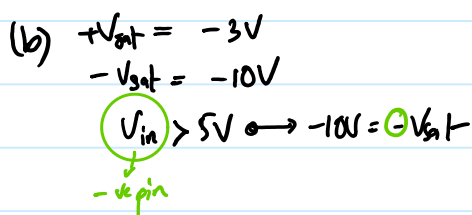 (b) +Vsat = -3V
-Vsat = -10V
Vin > 5V → -10V = -Vsat
-ve pin